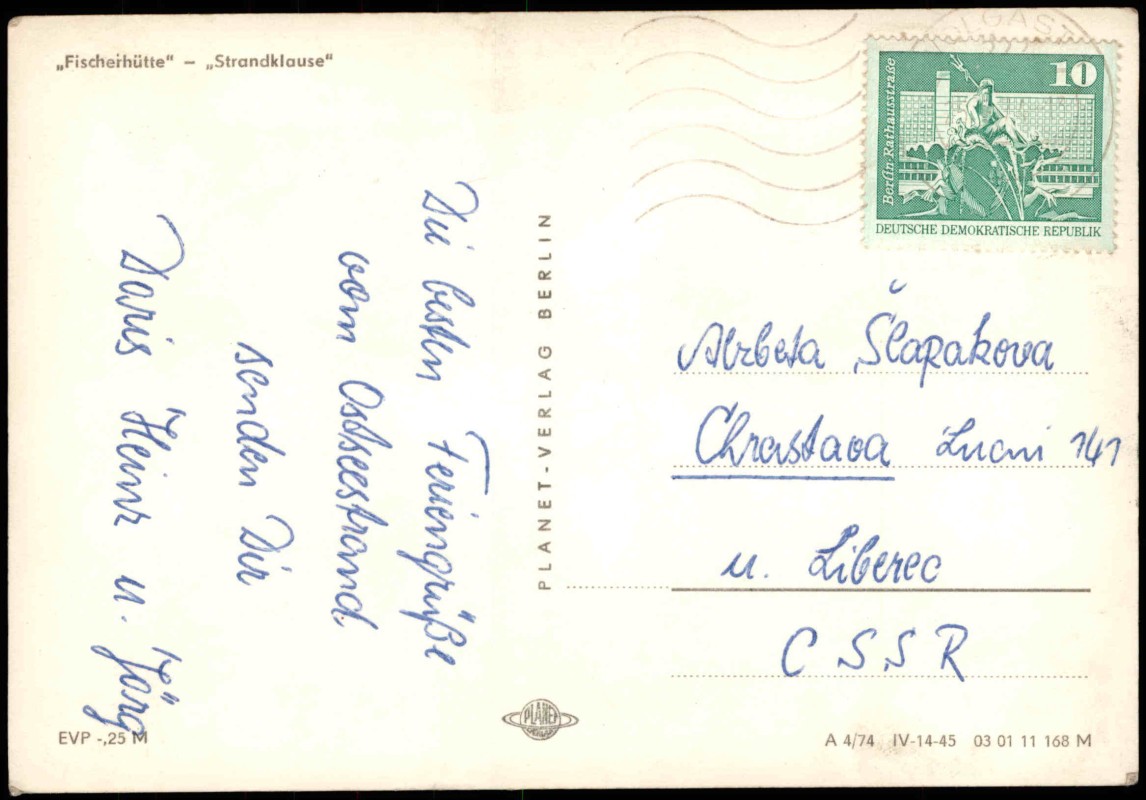 „Fischerhütte“ – „Strandklause“
Die besten Feriengrüße
vom Ostseestrand
senden Dir
Doris Heinz u. Jörg
PLANET-VERLAG BERLIN
PLANET
EVP -,25 M
10
Berlin-Rathausstraße
DEUTSCHE DEMOKRATISCHE REPUBLIK
Alzbeta Šlapakova
Chrastava Lucni 141
u. Liberec
C S S R
A 4/74 IV-14-45 03 01 11 168 M